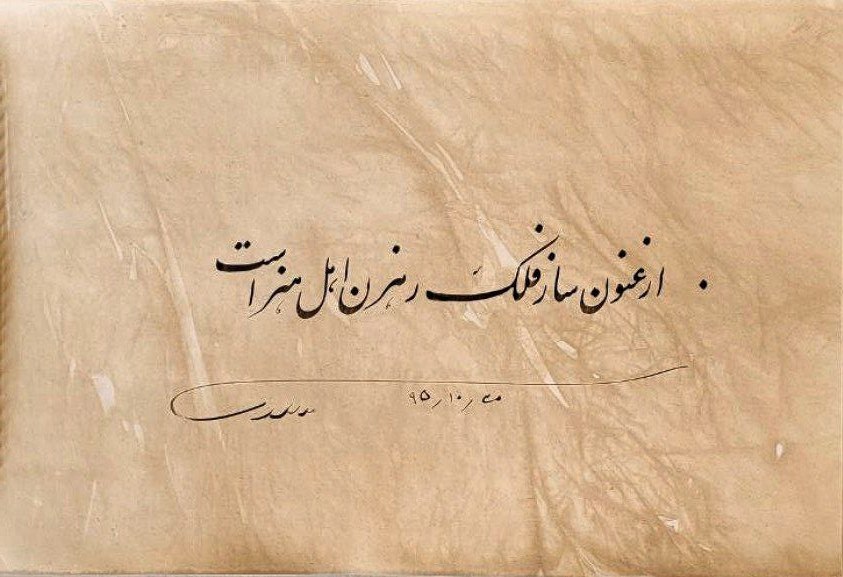 . ارغنون ساز فلک رهزن اهل هنر است
۹۵٫۱۰٫۳۰